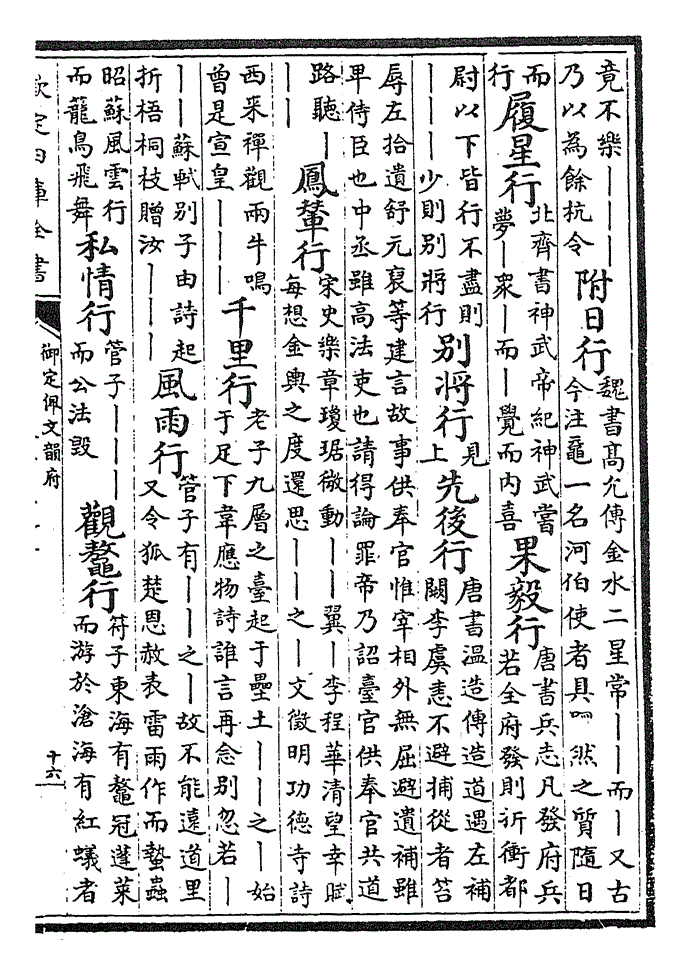 竟不樂————
乃以為餘杭令
附日行
魏書髙允傳金水二星常——而—又古
今注龜一名河伯使者具然之質隨日
而
行
履星行
北齊書神武帝紀神武嘗
夢—衆—而—覺而内喜
果毅行
唐書兵志凡發府兵
若全府發則折衝都
尉以下皆行不盡則
———少則别將行
别將行
見
上
先後行
唐書温造傳造道遇左補
闕李虞恚不避捕從者笞
辱左拾遺舒元裒等建言故事供奉官惟宰相外無屈避遺補雖
卑侍臣也中丞雖高法吏也請得論罪帝乃詔臺官供奉官共道
路聽—
——
鳳輦行
宋史樂章瓊琚微動——翼—李程華清望幸賦
每想金輿之度還思——之—文徵明功德寺詩
西来禪觀兩牛鳴
曽是宣皇———
千里行
老子九層之臺起于壘土——之—始
于足下韋應物詩誰言再念别忽若—
——蘇軾别子由詩起
折梧桐枝贈汝———
風雨行
管子有——之—故不能遠道里
又令狐楚恩赦表雷雨作而蟄蟲
昭蘇風雲行
而龍鳥飛舞
私情行
管子———
而公法毁
觀鼇行
符子東海有鼇冠蓬萊
而游於滄海有紅蟻者
欽定四庫全書
御定佩文韻府
十六